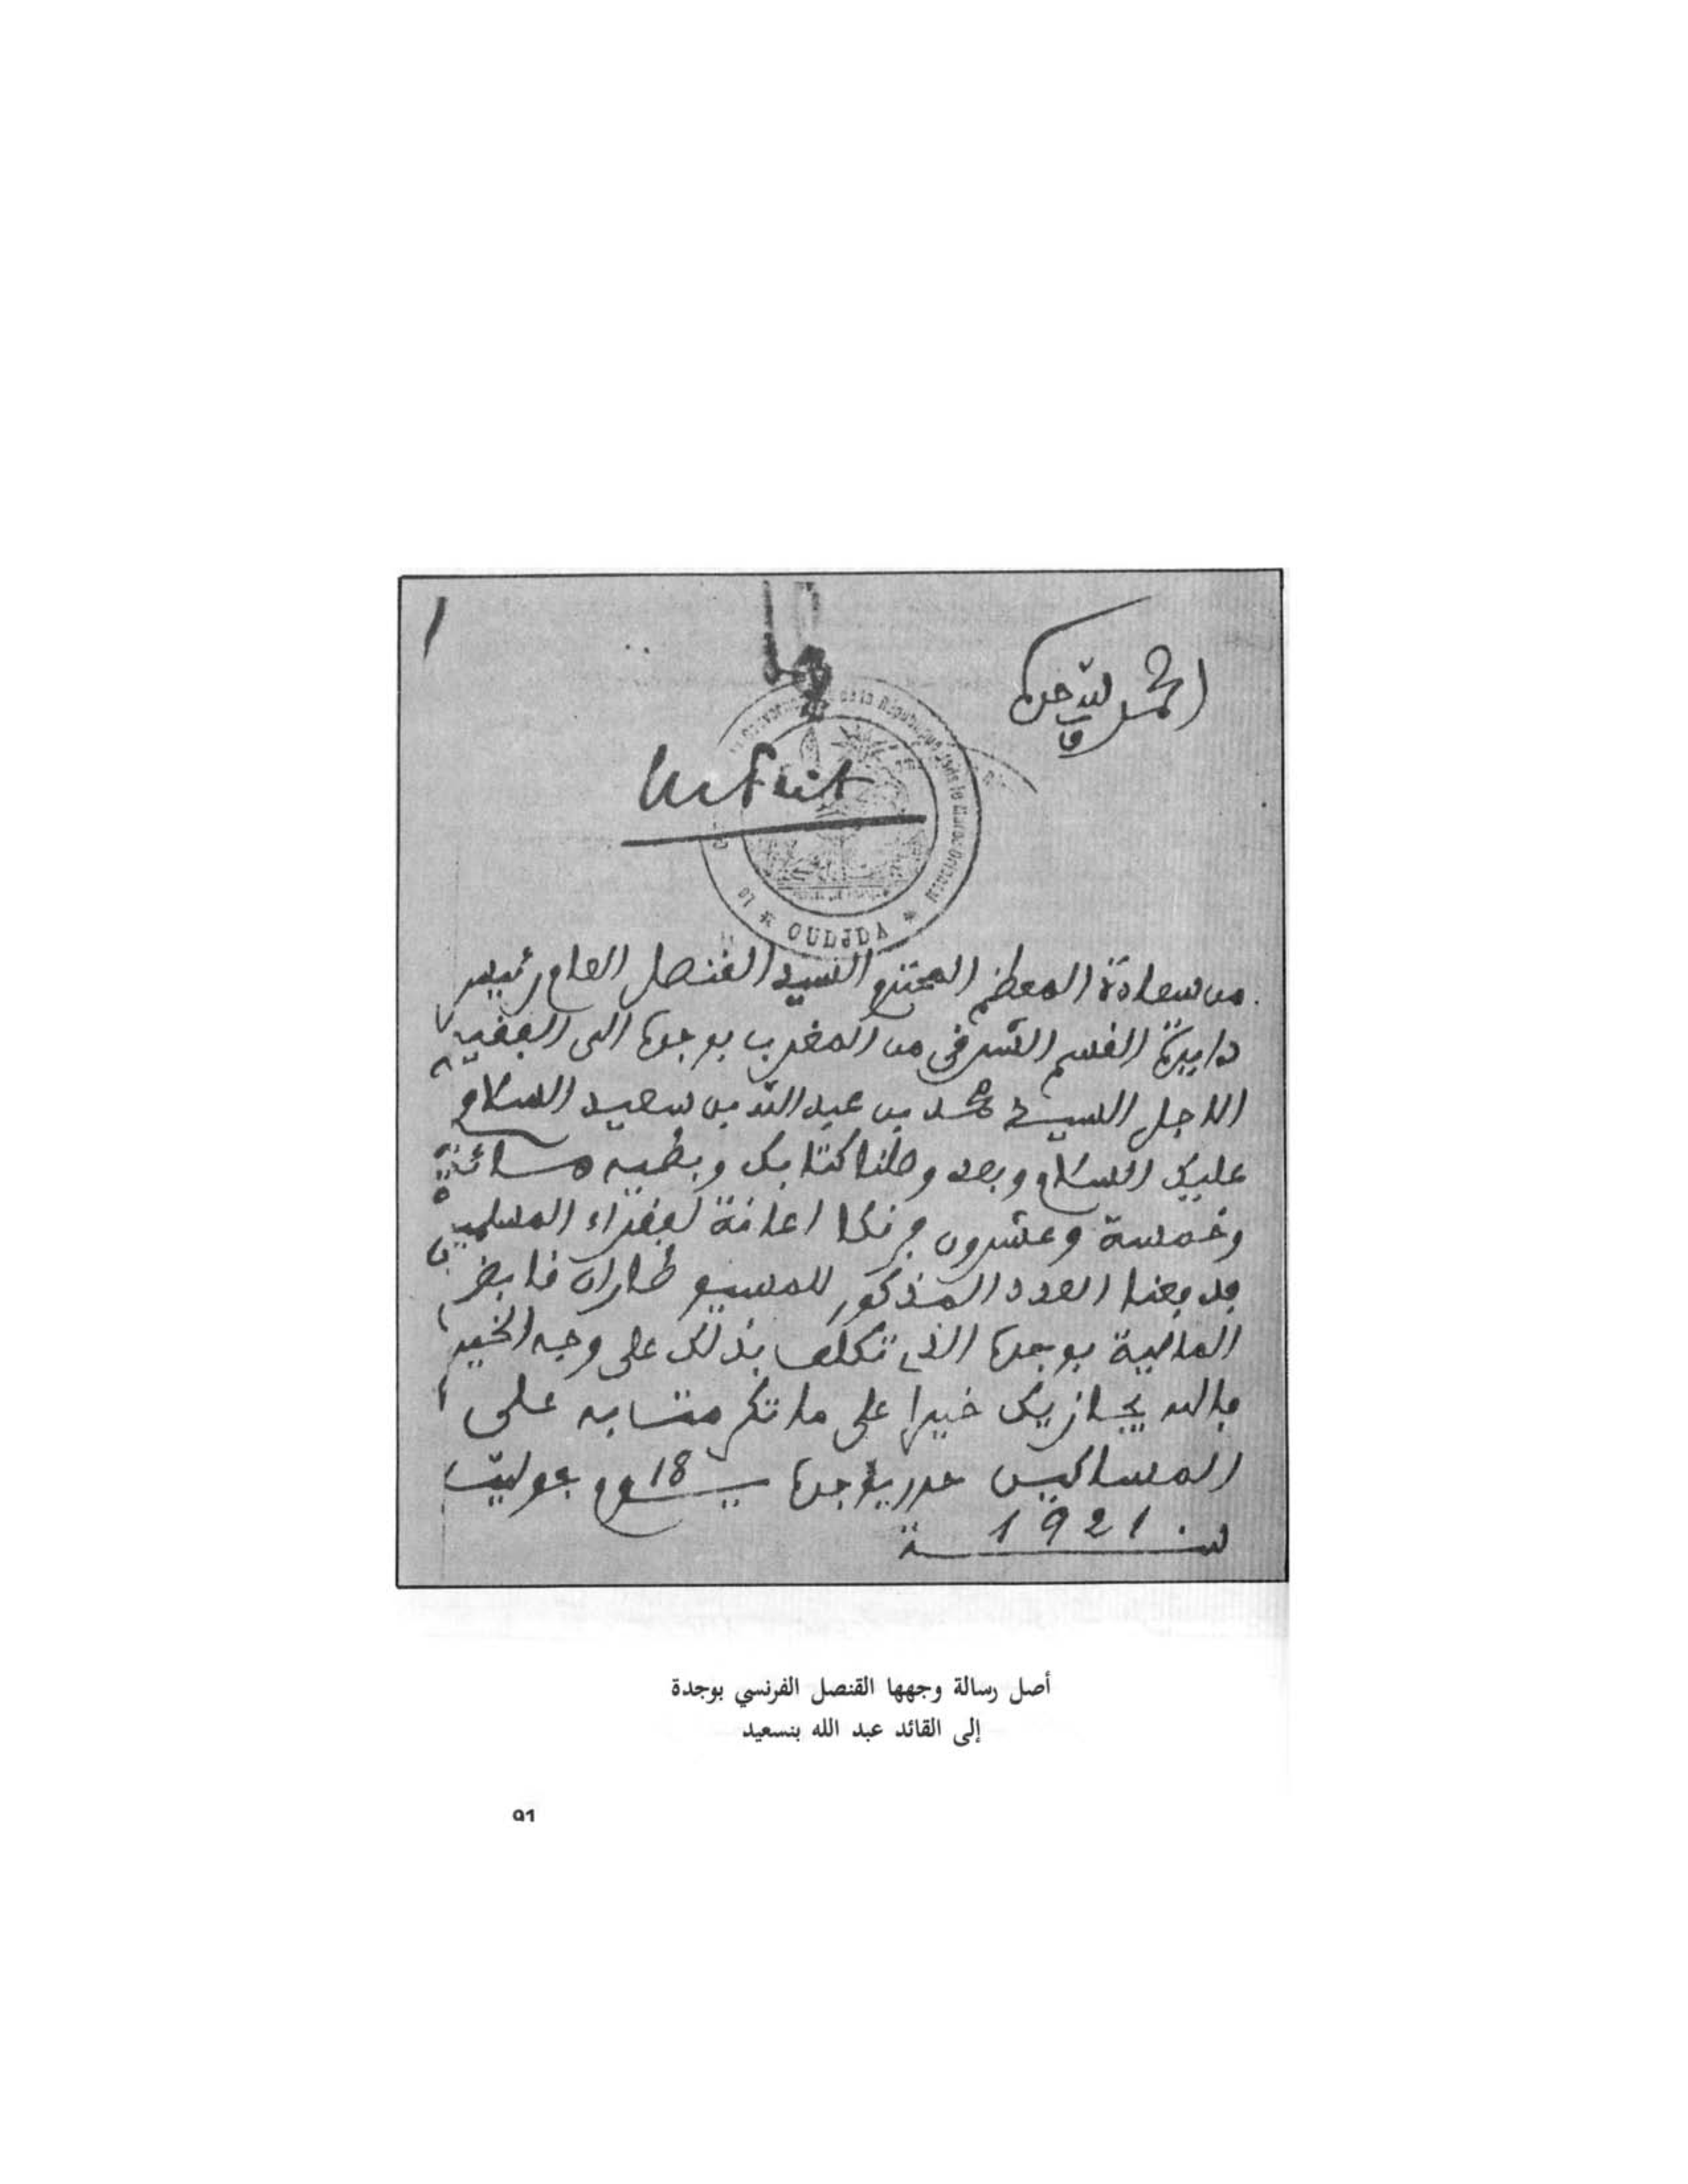 الحمد لله وحده
OUDJDA
من سعادة المعظم المحترم السيد القنصل العام رئيس
دايرة القسم الشرقي من المغرب بوجدة الى الفقيه
الاجل السيد محمد بن عبد الله بن سعيد السلام
عليك السلام وبعد وصلنا كتابك وبطيه مائة
وخمسة وعشرون فرنكا اعانة لفقراء المسلمين
فدفعنا العدد المذكور للمسيو طاران قابض
المالية بوجدة الذي تكلف بذلك على وجه الخير
فالله يجازيك خيرا على ما تكرمت به على
المساكين حرر بوجدة يوم 18 جوليت
سنة 1921
أصل رسالة وجهها القنصل الفرنسي بوجدة
إلى القائد عبد الله بنسعيد
91